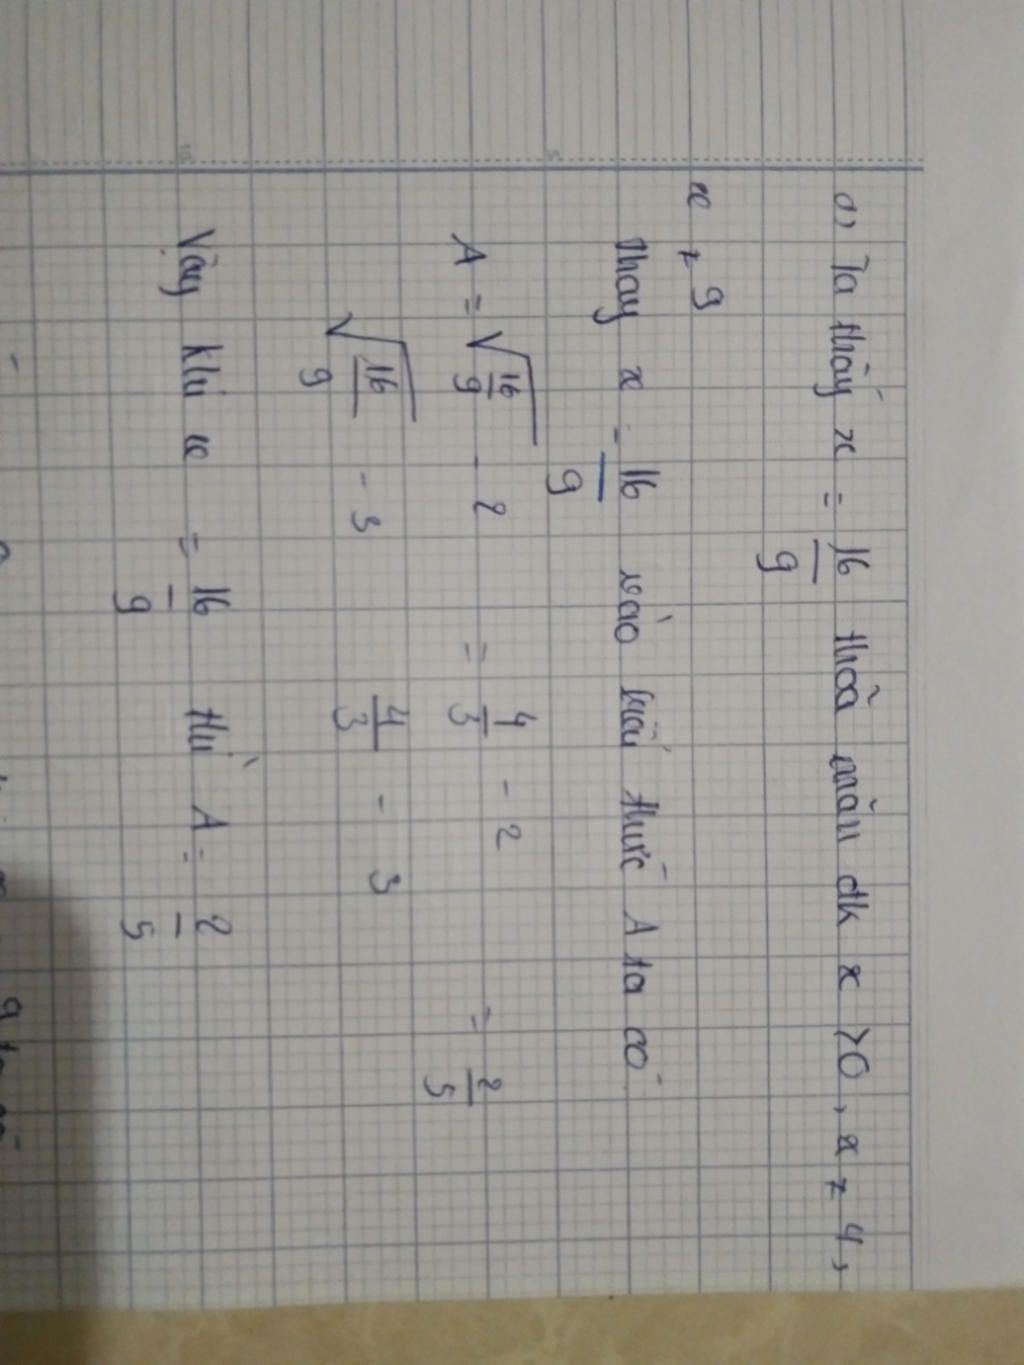 a) Ta thấy x = 16/9 thỏa mãn đk x > 0, x ≠ 4,
x ≠ 9
Thay x = 16/9 vào biểu thức A ta có
A = (√(16/9) - 2) / (√(16/9) - 3) = (4/3 - 2) / (4/3 - 3) = 2/5
Vậy khi x = 16/9 thì A = 2/5